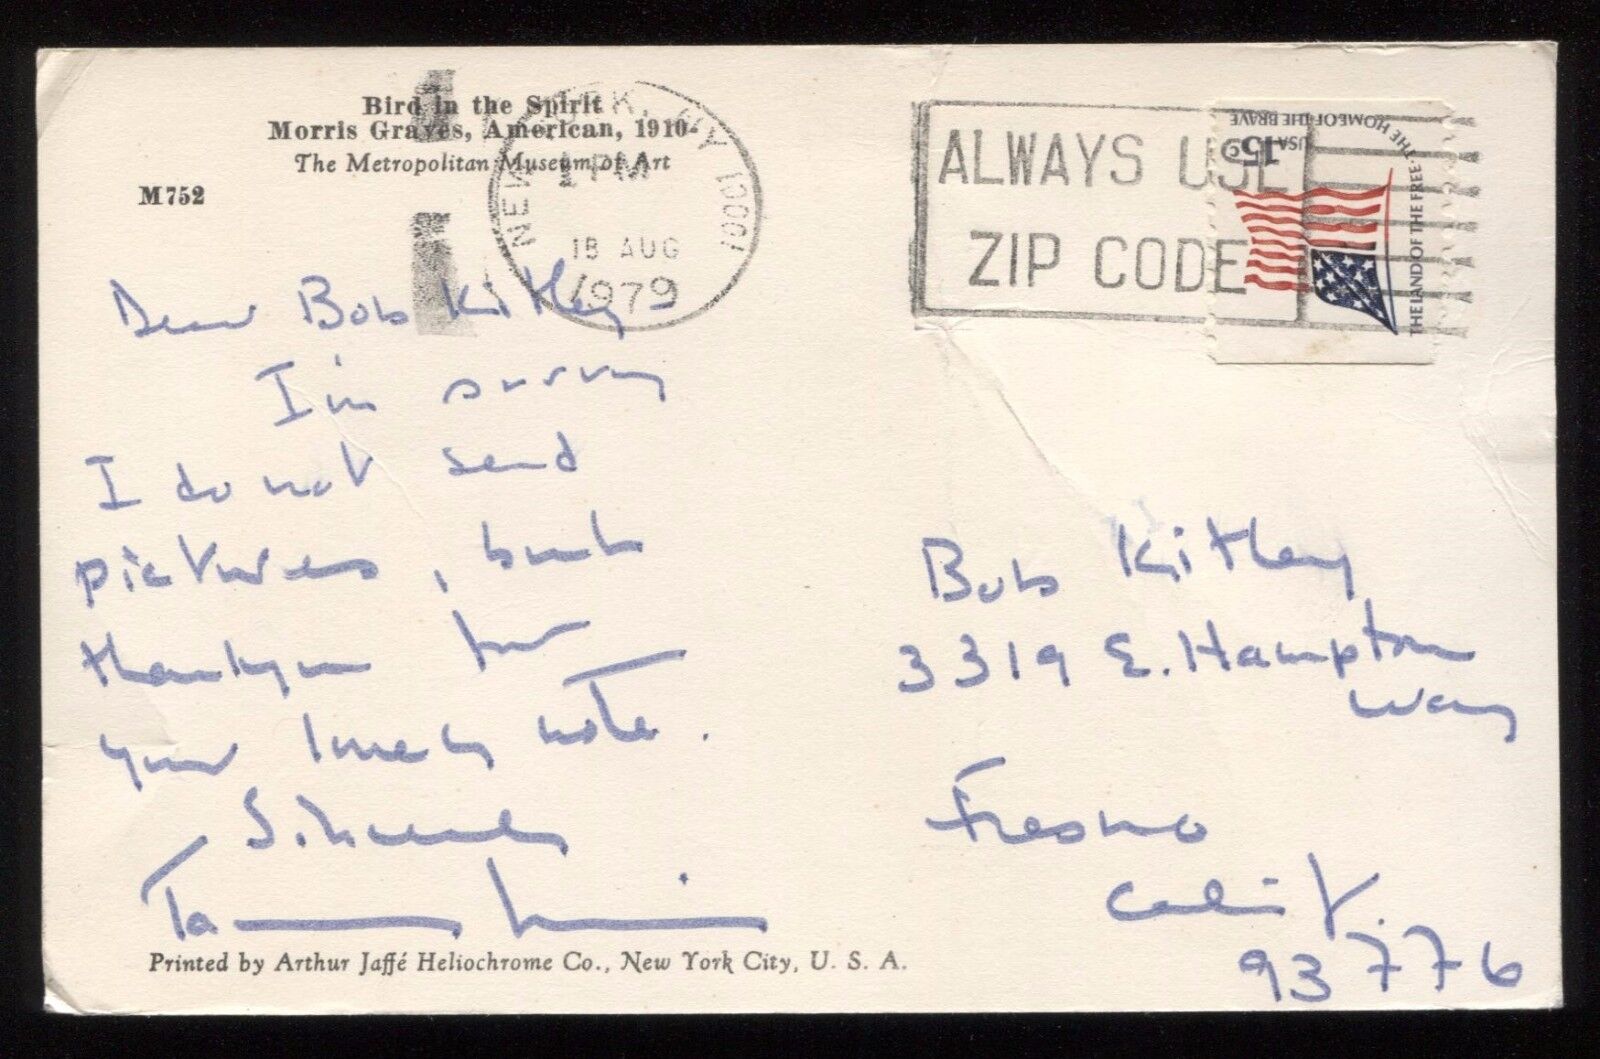 Bird in the Spirit
Morris Graves, American, 1910-
The Metropolitan Museum of Art
M752
NEW YORK, NY 10001
1 PM
18 AUG
1979
ALWAYS USE
ZIP CODE
USA 15c
THE LAND OF THE FREE · THE HOME OF THE BRAVE
Dear Bob Kitley
I'm sorry
I do not send
pictures, but
thankyou for
your lovely note.
Sincerely
Bob Kitley
3319 E. Hampton
Way
Fresno
Calif.
93776
Printed by Arthur Jaffé Heliochrome Co., New York City, U. S. A.